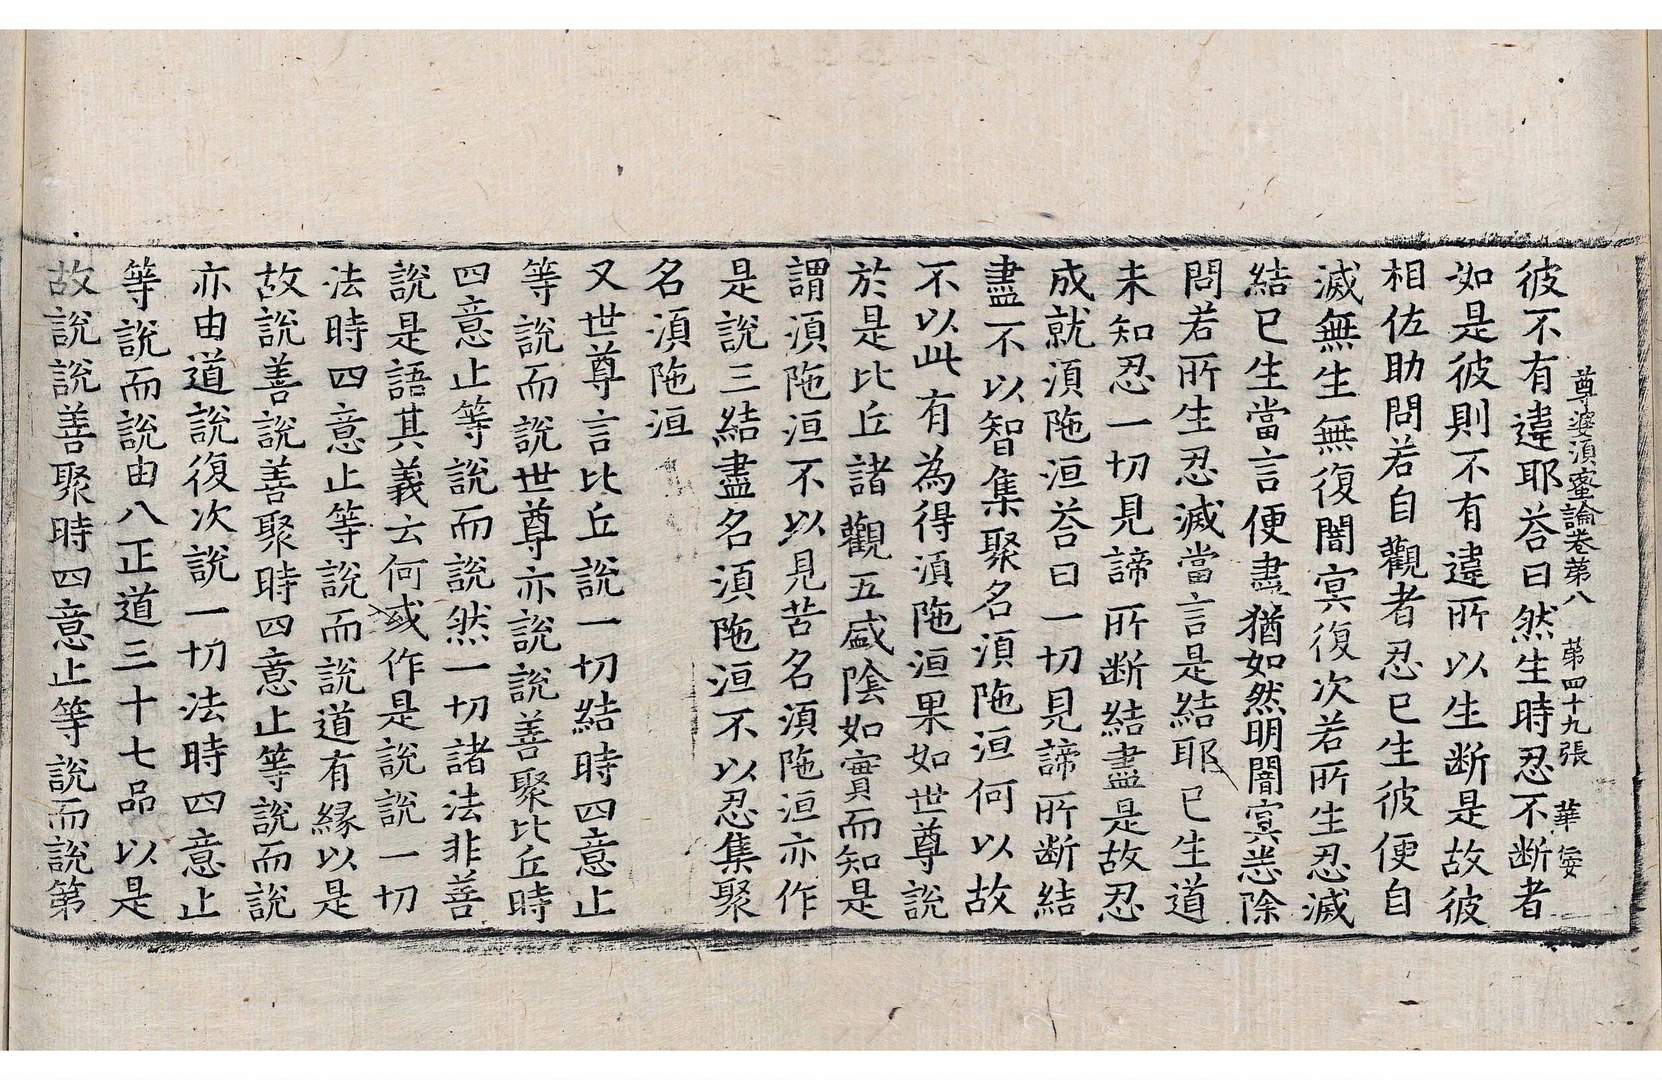 尊婆湏蜜論卷苐八　苐四十九張　華
彼不有違耶荅曰然生時忍不断者
如是彼則不有違所以生断是故彼
相佐助問若自觀者忍已生彼便自
滅無生無復闇冥復次若所生忍滅
結已生當言便盡猶如然明闇冥悉除
問若所生忍滅當言是結耶已生道
未知忍一切見諦所断結盡是故忍
成就湏陁洹荅曰一切見諦所断結
盡不以智集聚名湏陁洹何以故
不以此有為得湏陁洹果如世尊說
於是比丘諸觀五盛陰如實而知是
謂湏陁洹不以見苦名湏陁洹亦作
是說三結盡名湏陁洹不以忍集聚
名湏陁洹
又世尊言比丘說一切結時四意止
等說而說世尊亦說說善聚比丘時
四意止等說而說然一切諸法非善
說是語其義云何或作是說說一切
法時四意止等說而說道有緣以是
故說善說善聚時四意止等說而說
亦由道說復次說一切法時四意止
等說而說由八正道三十七品以是
故說說善聚時四意止等說而說第